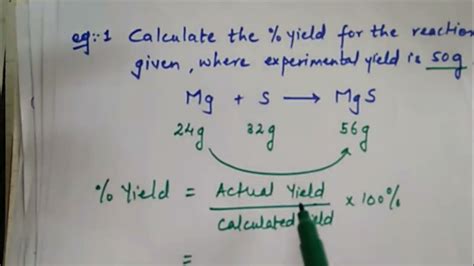 eg:-1 Calculate the % yield for the reaction
given, where experimental yield is 50g
Mg + S → MgS
24g 32g 56g
% Yield = Actual Yield / Calculated Yield × 100%
=